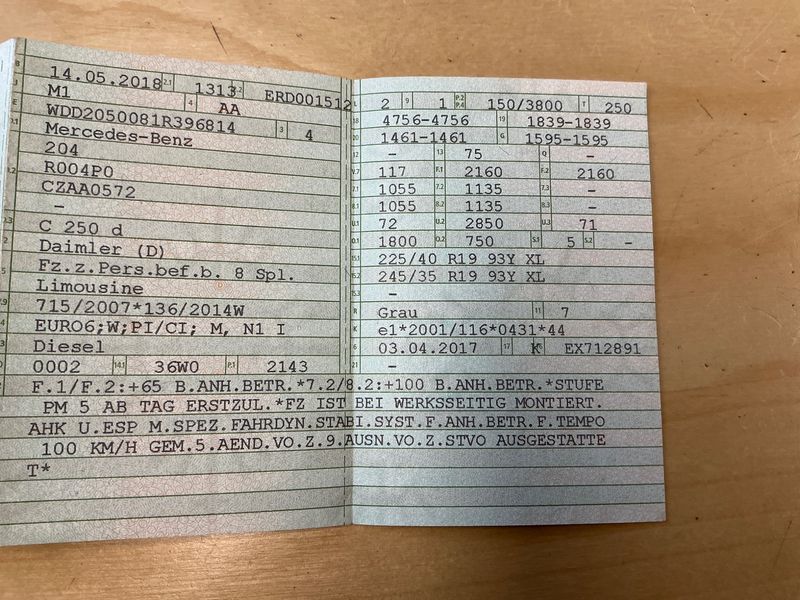 B 14.05.2018 2.1 1313 2.2 ERD001512
J M1 4 AA
E WDD2050081R396814 3 4
D.1 Mercedes-Benz
204
D.2 R004P0
CZAA0572
-
D.3 C 250 d
2 Daimler (D)
5 Fz.z.Pers.bef.b. 8 Spl.
Limousine
V.9 715/2007*136/2014W
14 EURO6;W;PI/CI; M, N1 I
P.3 Diesel
10 0002 14.1 36W0 P.1 2143
L 2 9 1 P.2 P.4 150/3800 T 250
18 4756-4756 19 1839-1839
20 1461-1461 G 1595-1595
12 - 13 75 Q -
V.7 117 F.1 2160 F.2 2160
7.1 1055 7.2 1135 7.3 -
8.1 1055 8.2 1135 8.3 -
U.1 72 U.2 2850 U.3 71
O.1 1800 O.2 750 S.1 5 S.2 -
15.1 225/40 R19 93Y XL
15.2 245/35 R19 93Y XL
15.3 -
R Grau 11 7
K e1*2001/116*0431*44
6 03.04.2017 17 K 16 EX712891
21 -
F.1/F.2:+65 B.ANH.BETR.*7.2/8.2:+100 B.ANH.BETR.*STUFE
PM 5 AB TAG ERSTZUL.*FZ IST BEI WERKSSEITIG MONTIERT.
AHK U.ESP M.SPEZ.FAHRDYN.STABI.SYST.F.ANH.BETR.F.TEMPO
100 KM/H GEM.5.AEND.VO.Z.9.AUSN.VO.Z.STVO AUSGESTATTE
T*